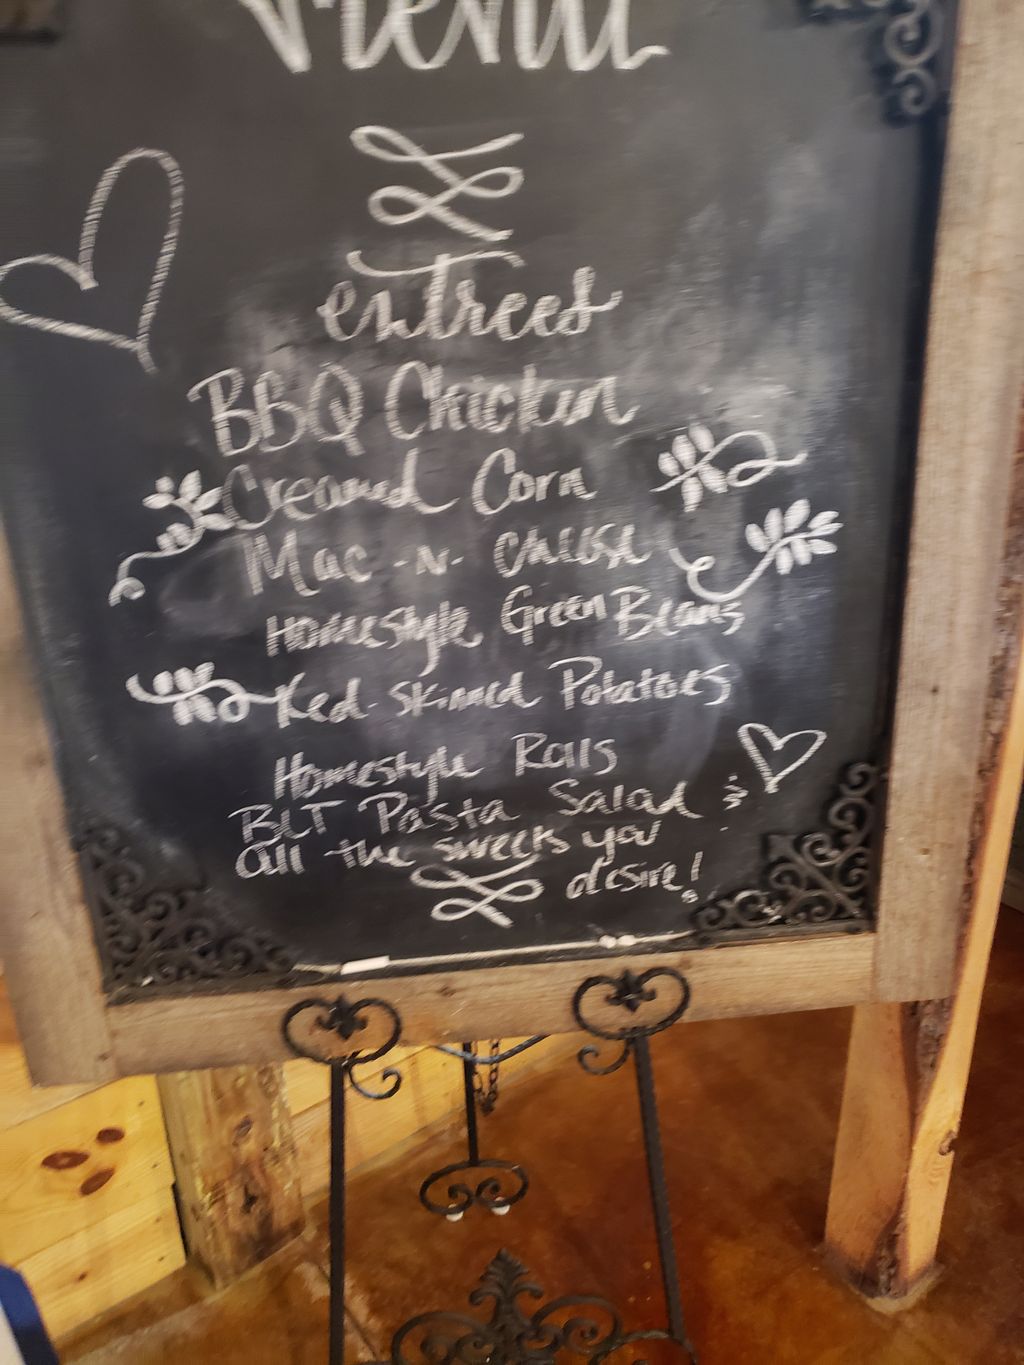 Menu
entrees
BBQ Chicken
Creamed Corn
Mac-N-Cheese
Homestyle Green Beans
Red-Skinned Potatoes
Homestyle Rolls
BLT Pasta Salad &
all the sweets you
desire!